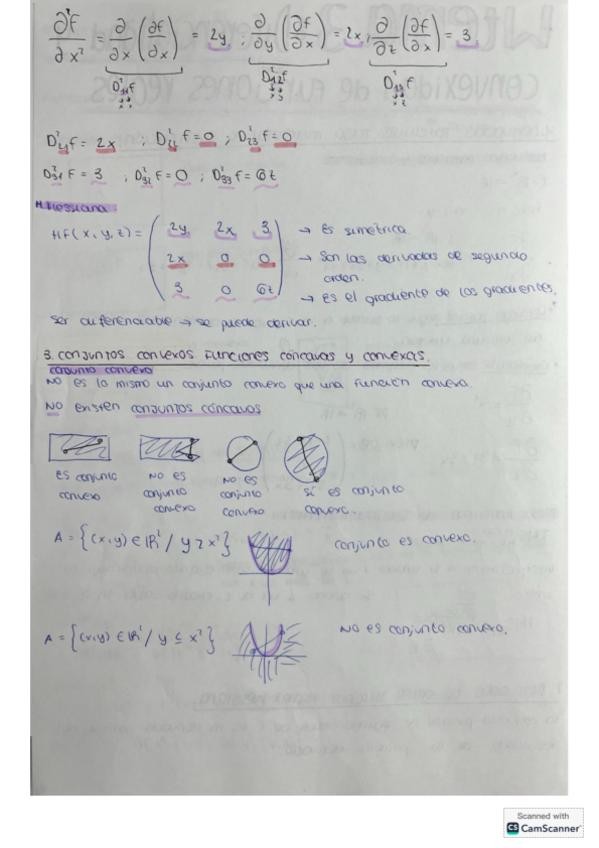 ∂²f/∂x² = ∂/∂x (∂f/∂x) = 2y ; ∂/∂y (∂f/∂x) = 2x ; ∂/∂z (∂f/∂x) = 3
D²₁₁f D²₁₂f D²₁₃f
D²₂₁f = 2x ; D²₂₂f = 0 ; D²₂₃f = 0
D²₃₁f = 3 ; D²₃₂f = 0 ; D²₃₃f = 6z
M. Hessiana
Hf(x,y,z) = ( 2y 2x 3 → Es simétrica.
2x 0 0 → Son las derivadas de segundo orden.
3 0 6z ) → Es el gradiente de los gradientes.
Ser diferenciable → se puede derivar.
3. Conjuntos convexos funciones cóncavas y convexas.
Conjunto convexo
NO es lo mismo un conjunto convexo que una función convexa.
NO existen conjuntos cóncavos
Es conjunto convexo
NO es conjunto convexo
NO es conjunto convexo
Sí es conjunto convexo.
A = {(x,y) ∈ ℝ² / y ≥ x²} conjunto es convexo.
A = {(x,y) ∈ ℝ² / y ≤ x²} No es conjunto convexo.
Scanned with
CS CamScanner